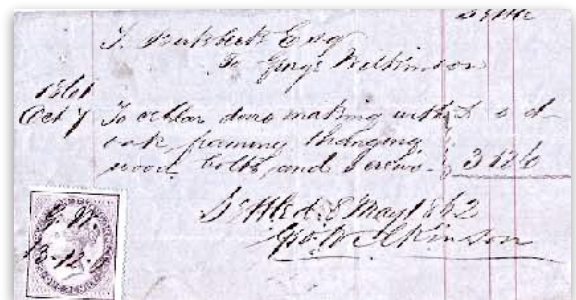 J. Birkbeck Esq
To George Wilkinson
1861
Oct 7 To cellar doors making with £ s d
oak, framing & hanging
wood, bolts, and screws. 3 12 6
Settled 8 May 1862
Geo. Wilkinson
G. W.